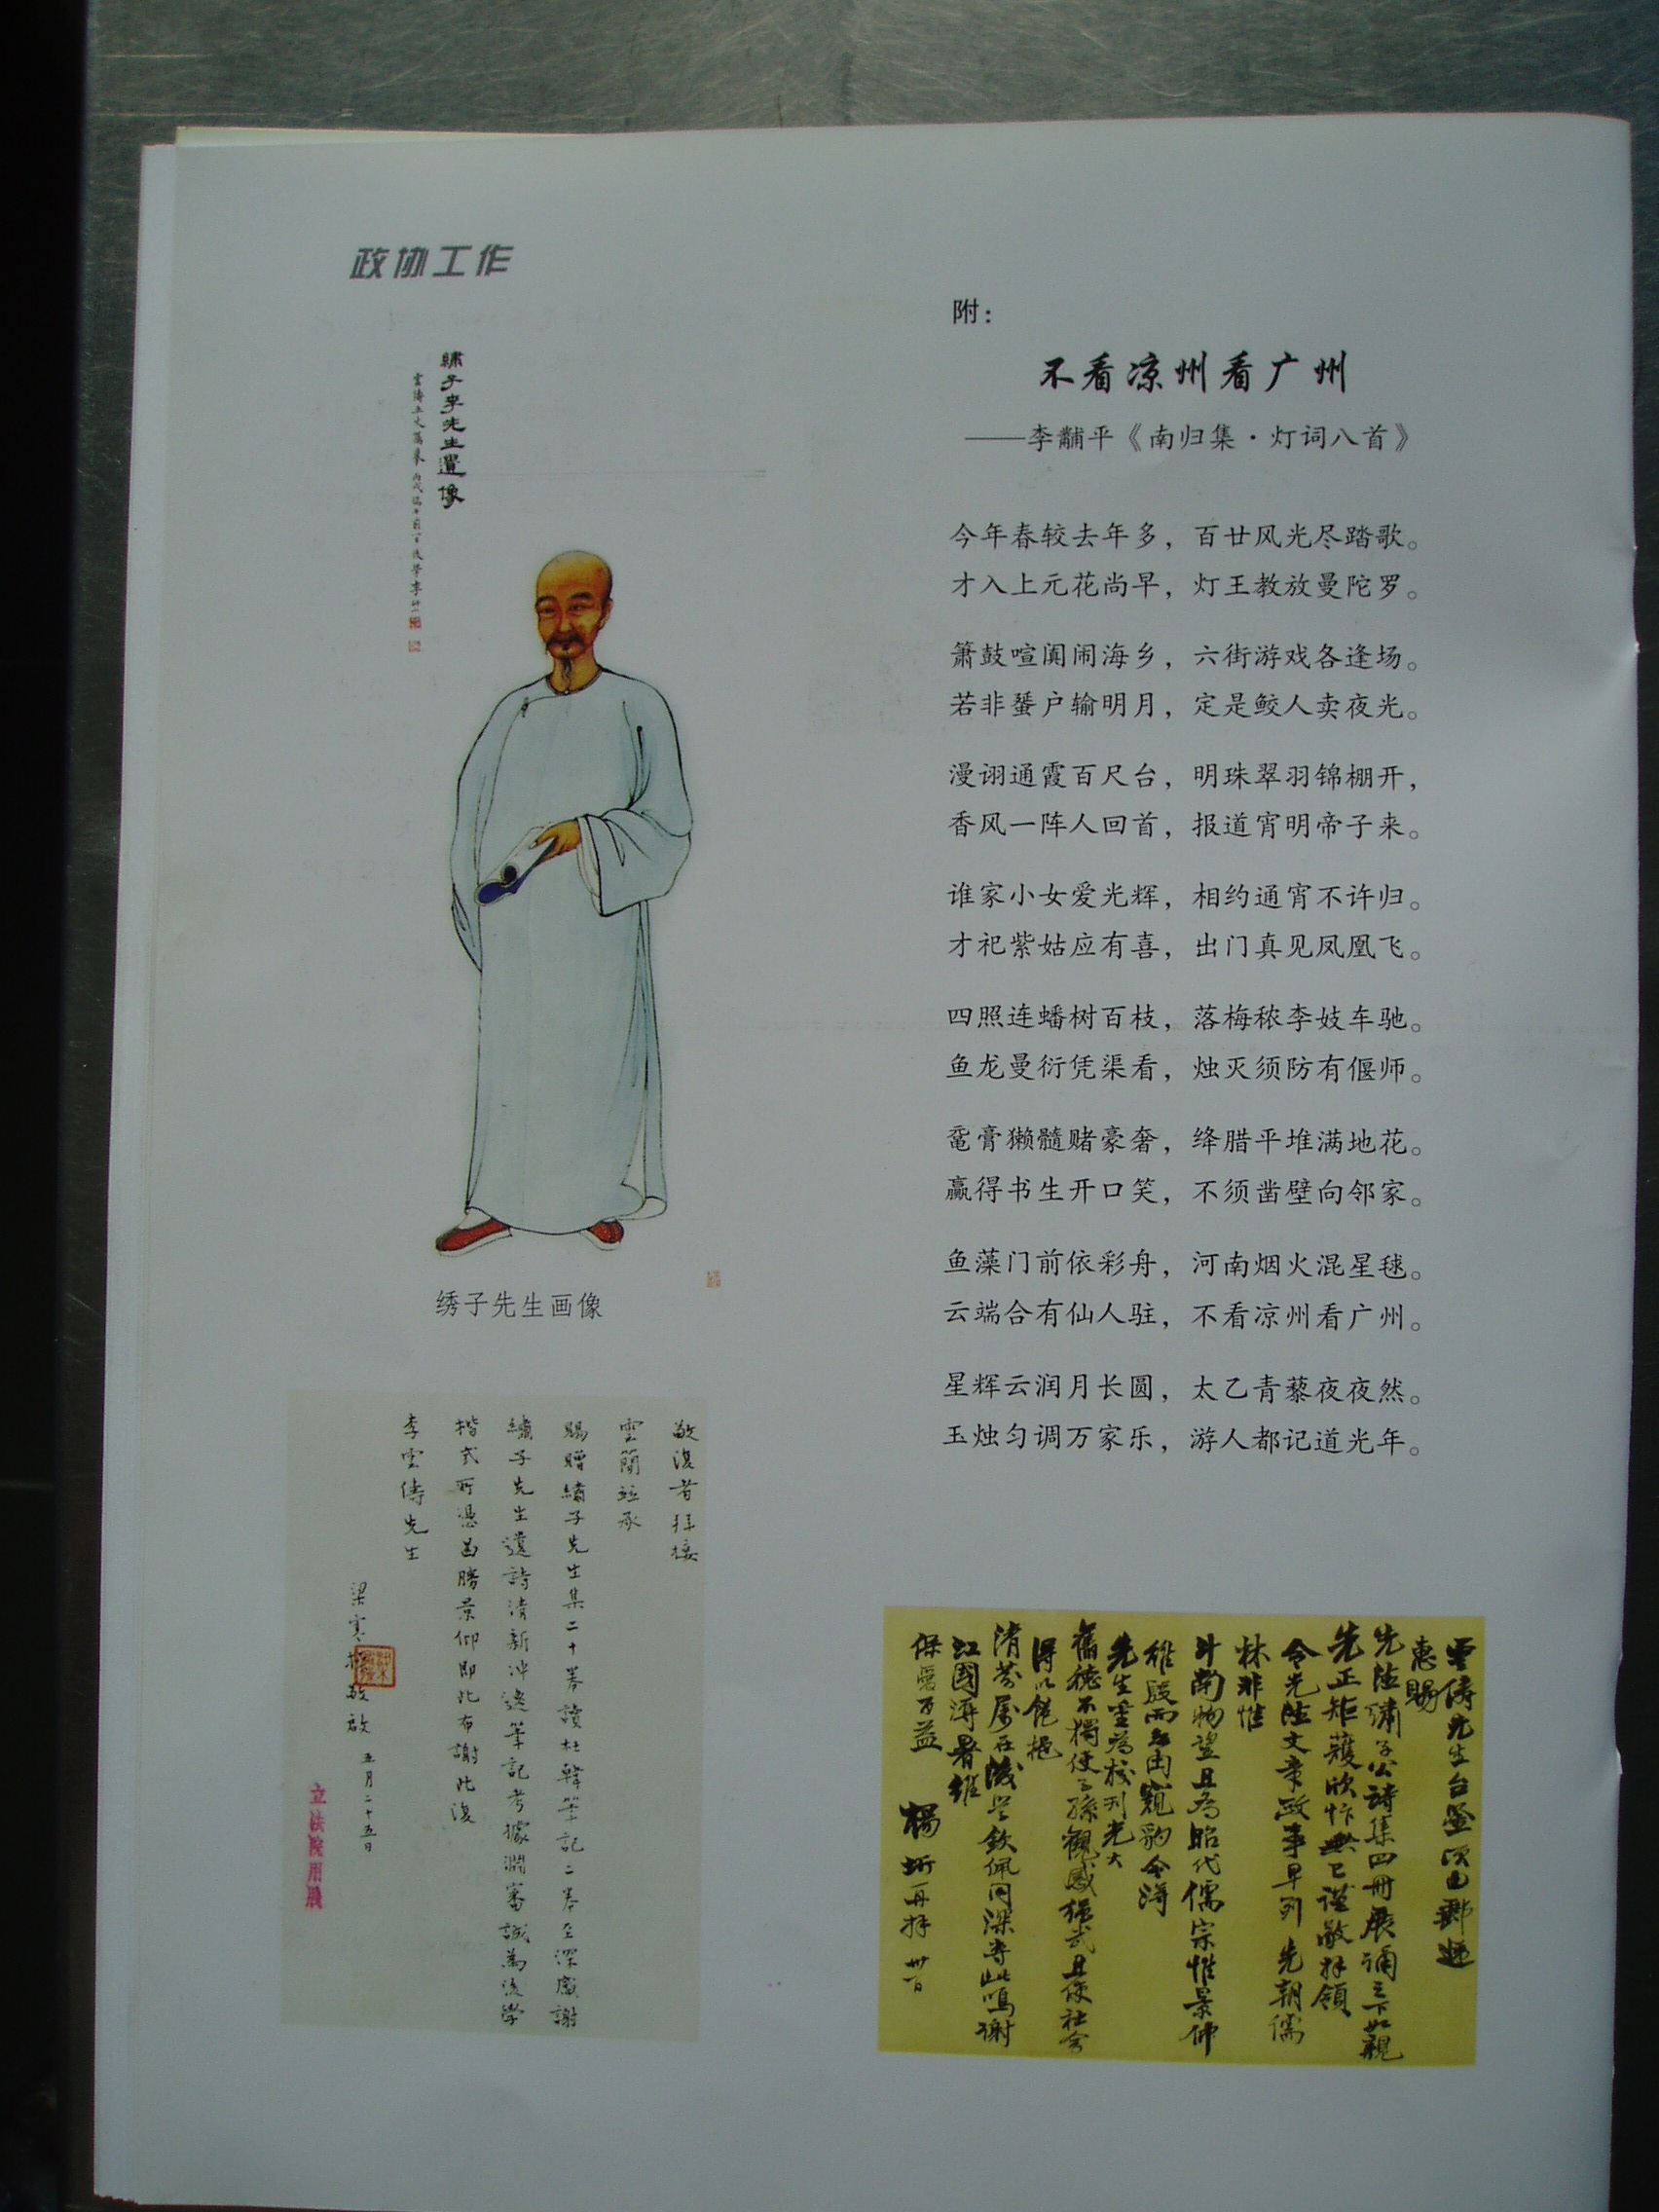 政协工作
繡子李先生遺像
绣子先生画像
敬復者拜接
雲簡並承
賜贈繡子先生集二十卷讀杜韓筆記二卷至深感謝
繡子先生遺詩清新沖逸筆記考據淵審誠為後學
楷式所憑曷勝景仰即此布謝此復
李雲儔先生
梁寒操敬啟 五月二十五日
立法院用牋
附：
不看凉州看广州
——李黼平《南归集·灯词八首》
今年春较去年多，百廿风光尽踏歌。
才入上元花尚早，灯王教放曼陀罗。
箫鼓喧阗闹海乡，六街游戏各逢场。
若非蜑户输明月，定是鲛人卖夜光。
漫诩通霞百尺台，明珠翠羽锦棚开，
香风一阵人回首，报道宵明帝子来。
谁家小女爱光辉，相约通宵不许归。
才祀紫姑应有喜，出门真见凤凰飞。
四照连蟠树百枝，落梅秾李妓车驰。
鱼龙曼衍凭渠看，烛灭须防有偃师。
鼋膏獭髓赌豪奢，绛腊平堆满地花。
赢得书生开口笑，不须凿壁向邻家。
鱼藻门前依彩舟，河南烟火混星毬。
云端合有仙人驻，不看凉州看广州。
星辉云润月长圆，太乙青藜夜夜然。
玉烛匀调万家乐，游人都记道光年。
雲儔先生台鉴 郵遞
惠賜
先陸繡子公詩集四冊展誦之下如親
先正矩矱欣忭無已謹敬拜領
令先陸文章政事早列 先朝儒
林非惟
斗南物望且為昭代儒宗惟景仰
雖殷而未由窺豹今得
先生重為校刊光大
舊德不獨使子孫觀感繩武且使社會
得以飽挹
清芬居在後學欽佩同深專此鳴謝
虹國溽暑維
保愛万益 楊 再拜